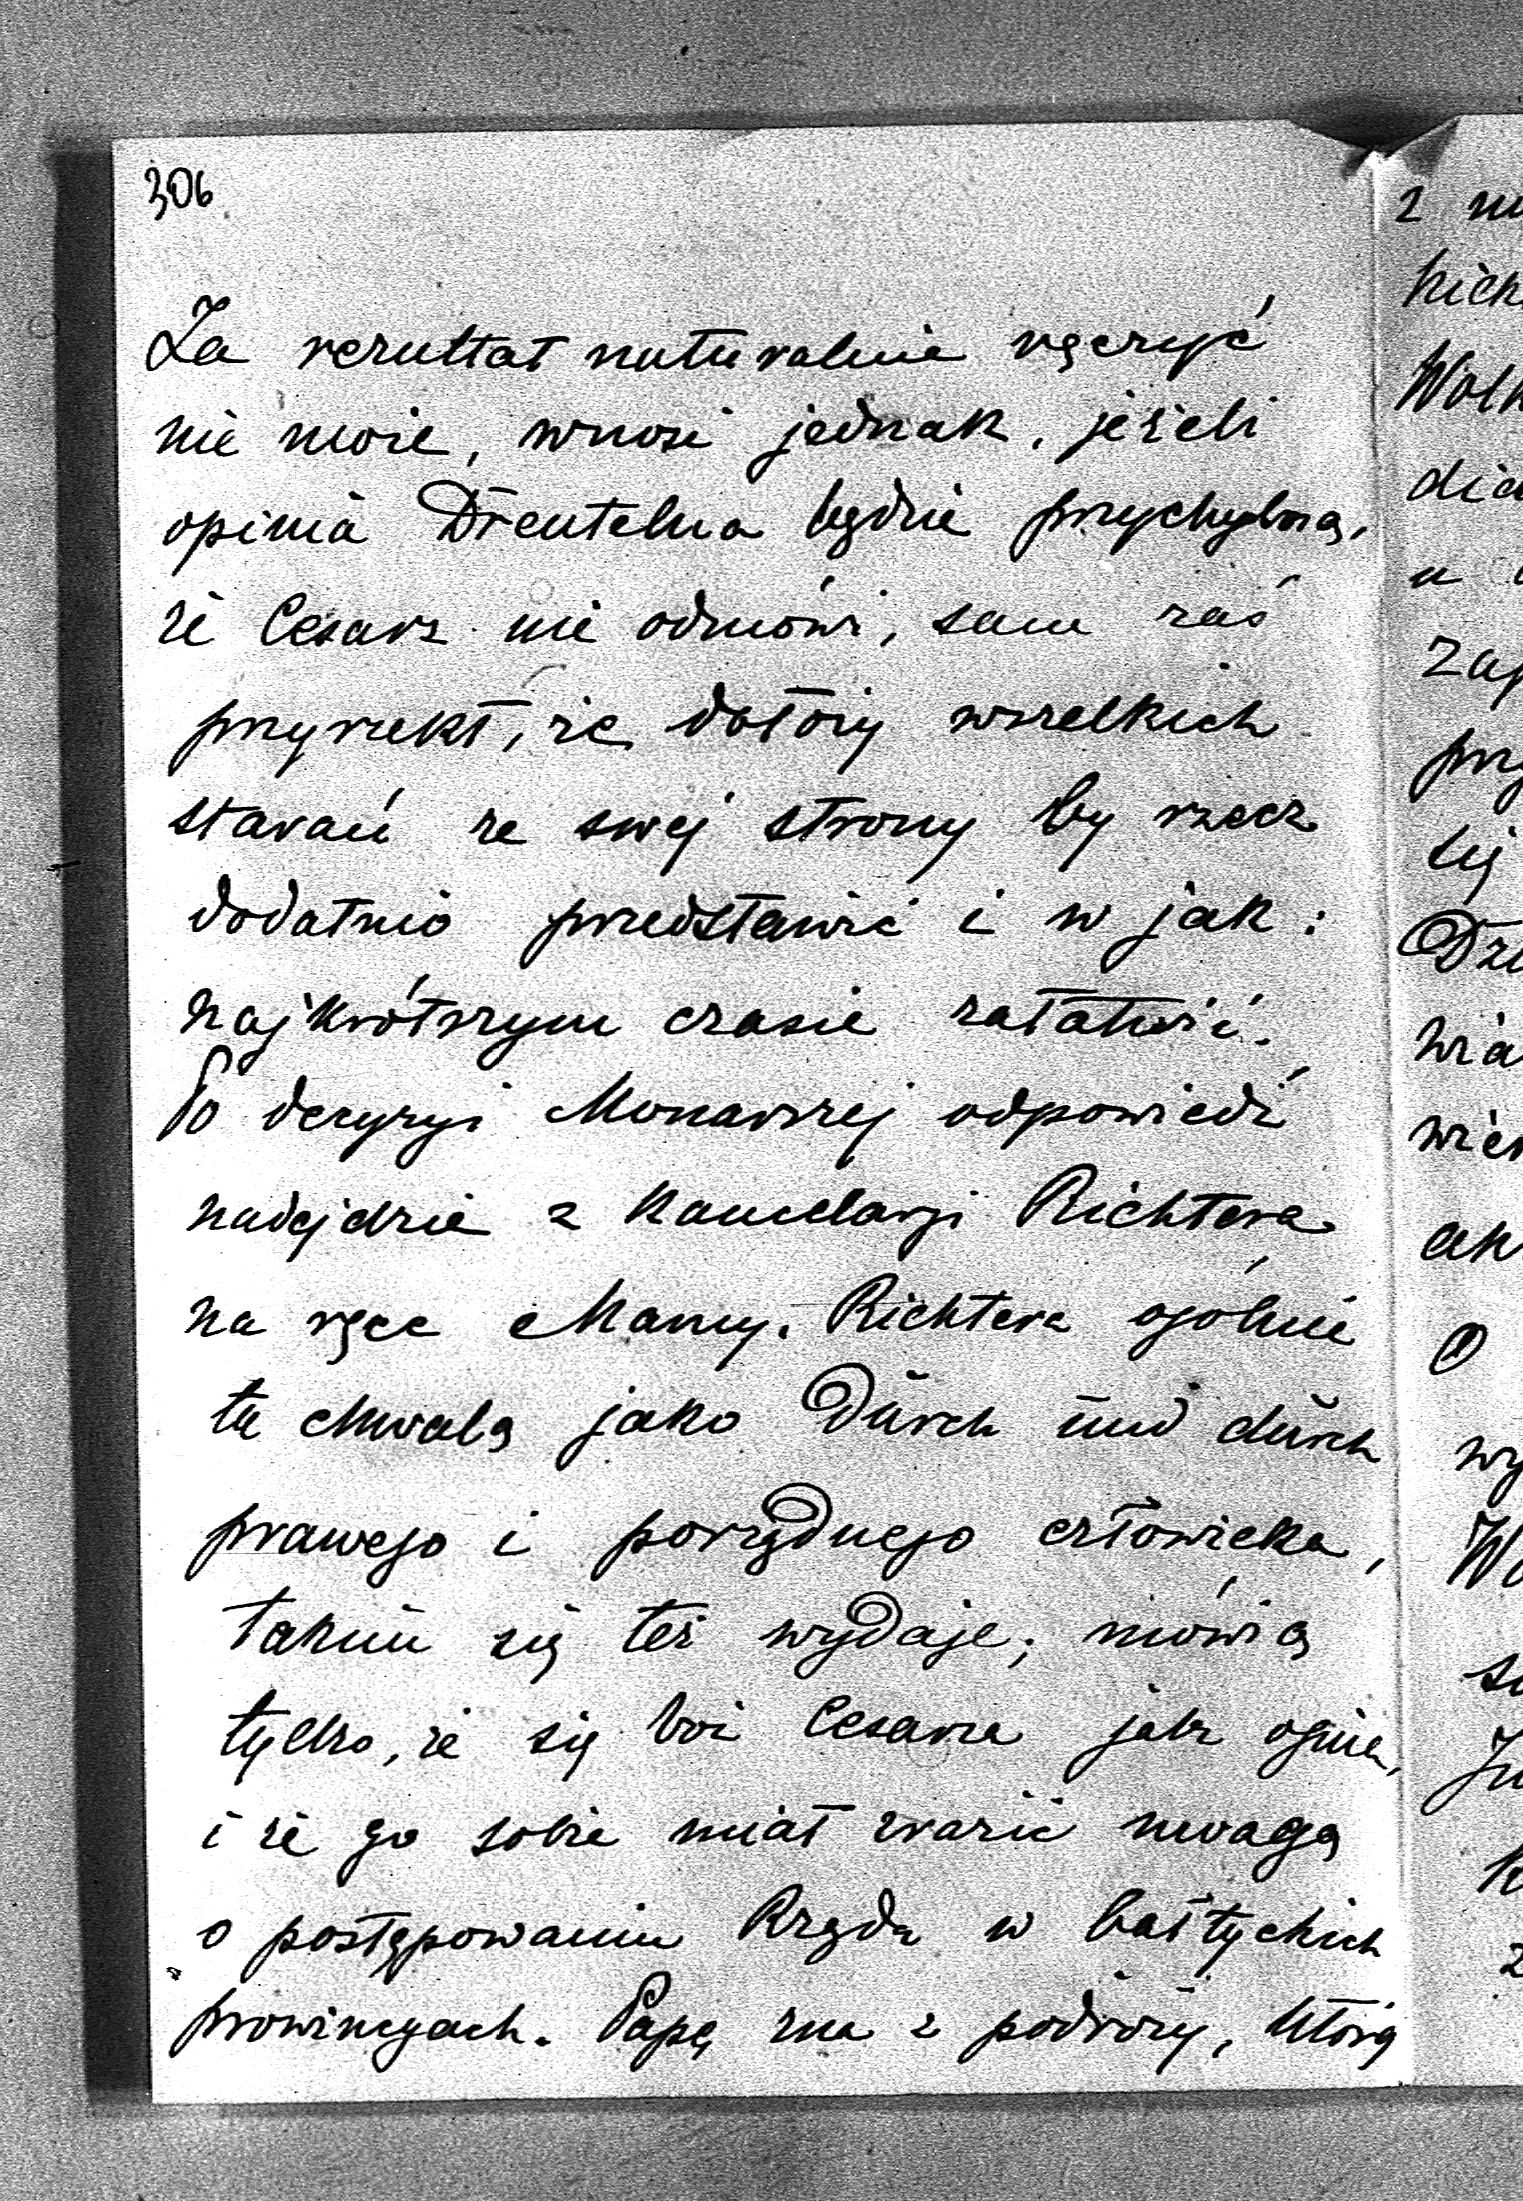 306
Za rezultat naturalnie ręczyć
nie może, wnosi jednak, jeżeli
opinia Drentelna będzie przychylną,
że Cesarz nie odmówi, sam zaś
przyrzekł, że dołoży wszelkich
starań ze swej strony by rzecz
dodatnio przedstawić i w jak:
najkrótszym czasie załatwić.
Po decyzyi Monarszej odpowiedź
nadejdzie z kancelarji Richtera
na ręce Mamy. Richtera ogólnie
tu chwalą jako Dŭrch ŭnd dŭrch
prawego i porządnego człowieka,
takim się też wydaje; mówią
tylko, że się boi Cesarza jak ognia,
i że go sobie miał zrazić uwagą
o postępowaniu Rządu w bałtyckich
prowincyach. Papę zna z podróży, którą